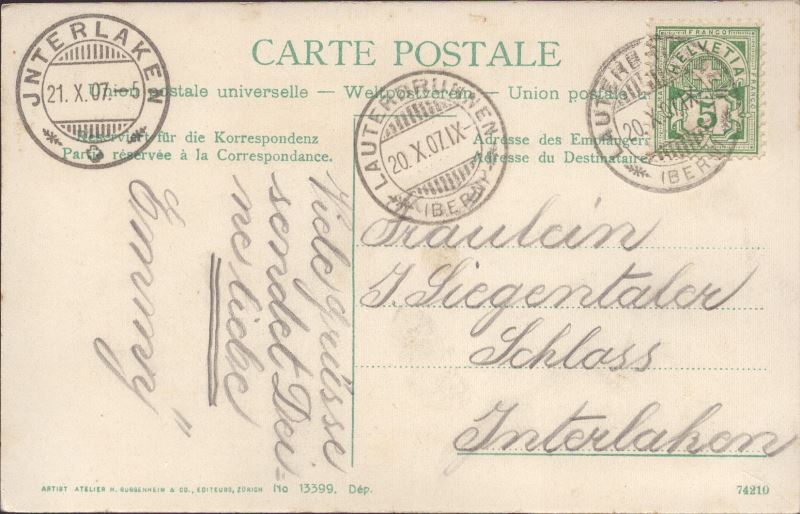 CARTE POSTALE
Union postale universelle — Weltpostverein — Union postale u
Reserviert für die Korrespondenz
Partie réservée à la Correspondance.
Adresse des Empfängers
Adresse du Destinataire
JNTERLAKEN
21. X. 07. - 5
LAUTERBRUNNEN
20. X. 07. IX-
(BERN)
LAUTERB
20. X. 07. IX
(BERN
FRANCO
HELVETIA
5
Viele grüsse
sendet Dei=
ne liebe
Emmy
Fräulein
J. Siegentaler
Schloss
Interlaken
ARTIST ATELIER H. GUGGENHEIM & CO., EDITEURS, ZÜRICH No 13399. Dép.
74210